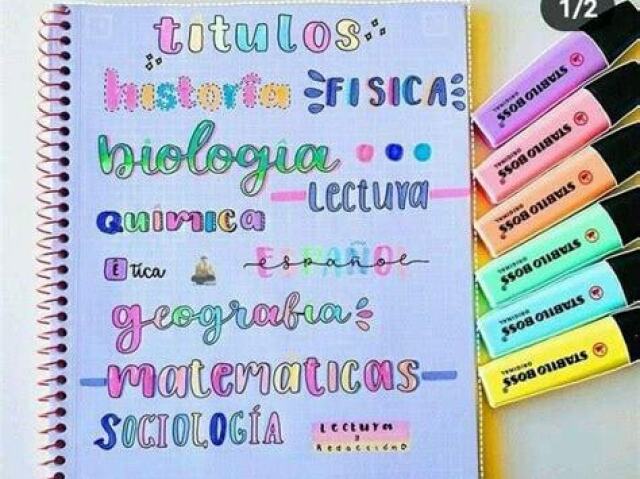 1/2
títulos
historia FISICA
biología
Lectura
QUÍMICA
Ética ESPAÑOL español
geografia
matemáticas
SOCIOLOGÍA
Lectura
y
Redacción
STABILO BOSS ORIGINAL
STABILO BOSS ORIGINAL
STABILO BOSS ORIGINAL
STABILO BOSS ORIGINAL
STABILO BOSS ORIGINAL
STABILO BOSS ORIGINAL